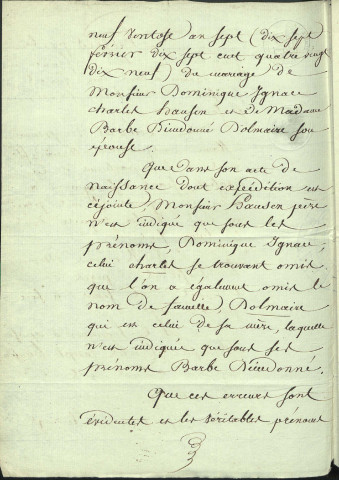 neuf Ventose an sept (dix sept
février dix sept cent quatre vingt
dix neuf) du mariage de
Monsieur Dominique Ignace
charles hausen et de Madame
Barbe Dieudonné Dolmaire son
épouse.
Que dans son acte de
naissance dont expédition est
cijointe, Monsieur Hausen père
n'est indiqué que sous les
prénoms, Dominique Ignace;
celui charles se trouvant omis
que l'on a également omis le
nom de famille, Dolmaire
qui est celui de sa mère, laquelle
n'est indiquée que sous ses
prénoms Barbe Dieudonné.
Que ces erreurs sont
évidentes et les véritables prénoms